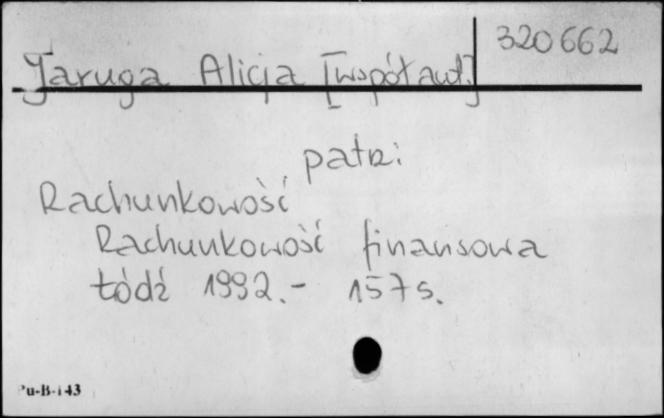 320662
Jaruga Alicja [współaut.]
patrz:
Rachunkowość
Rachunkowość finansowa
Łódź 1992.- 157 s.
Pu-B-143